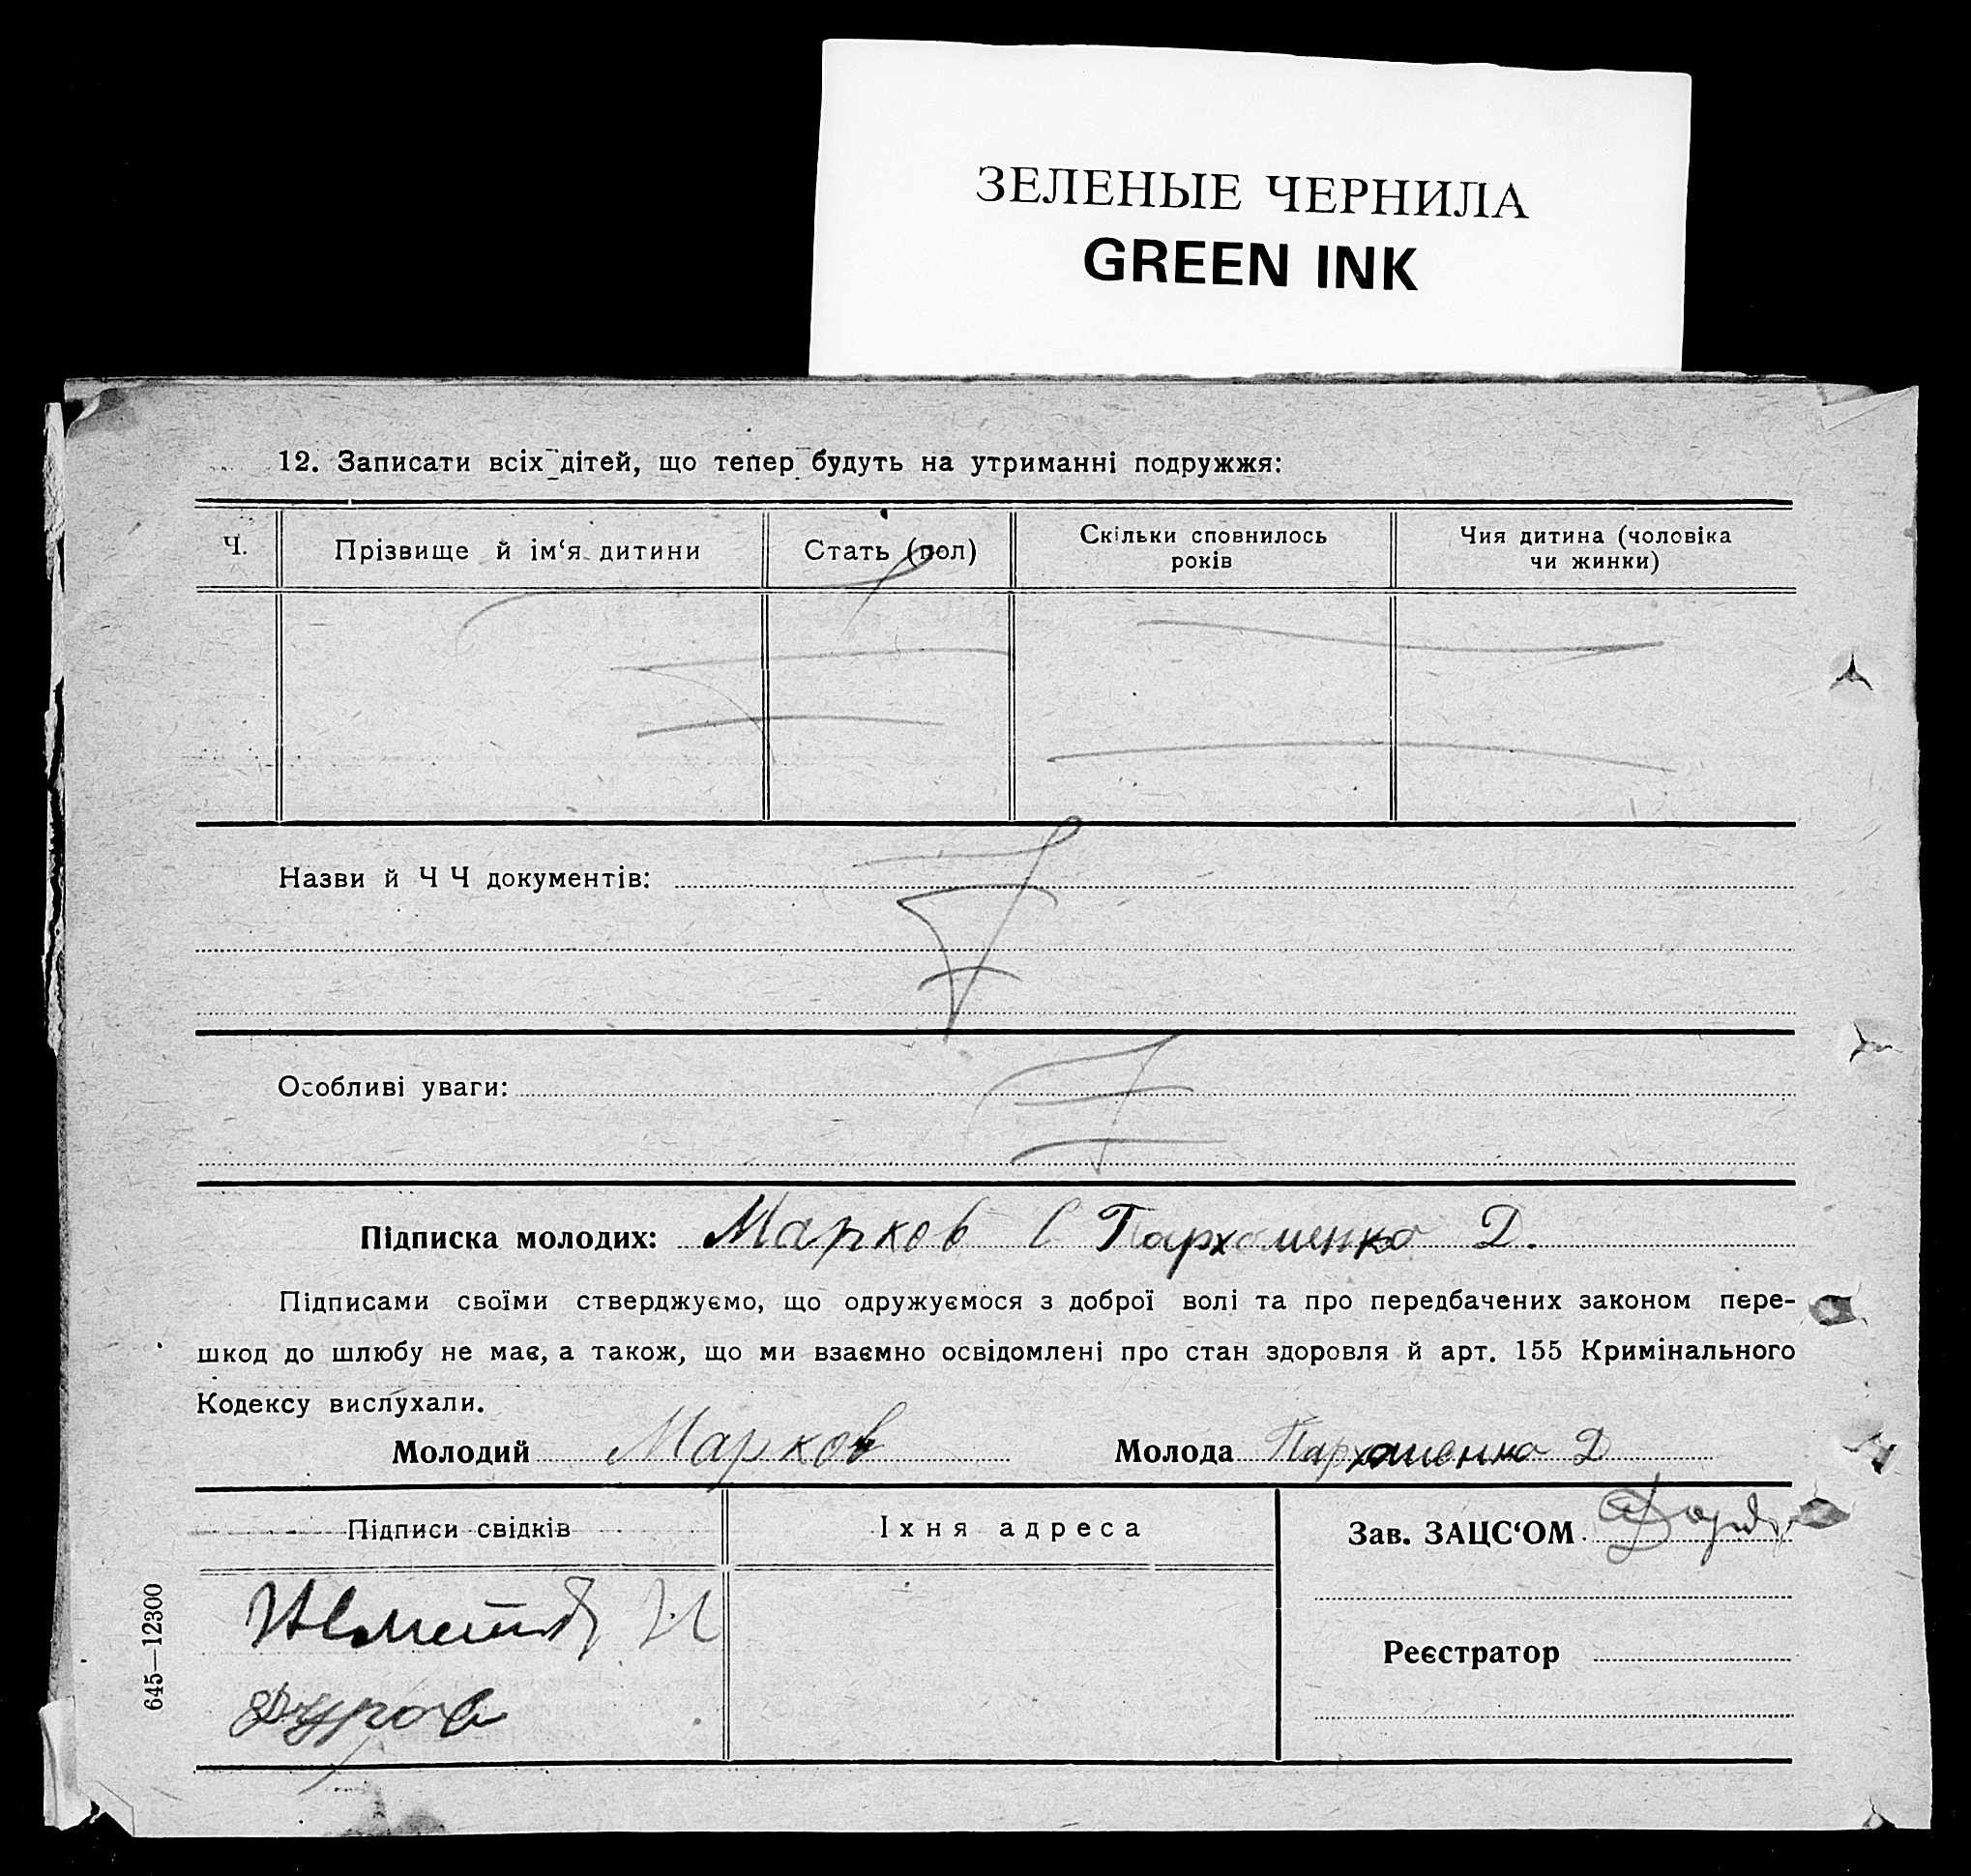 ЗЕЛЕНЫЕ ЧЕРНИЛА
GREEN INK
12. Записати всіх дітей, що тепер будуть на утриманні подружжя:
Ч. Прізвище й ім‘я дитини Стать (пол) Скільки сповнилось років Чия дитина (чоловіка чи жинки)
Назви й Ч Ч документів:
Особливі уваги:
Підписка молодих: Марков С Пархоменко Д.
Підписами своїми стверджуємо, що одружуємося з доброї волі та про передбачених законом пере-
шкод до шлюбу не має, а також, що ми взаємно освідомлені про стан здоровля й арт. 155 Кримінального
Кодексу вислухали.
Молодий Марков Молода Пархоменко Д
Підписи свідків Їхня адреса Зав. ЗАЦС‘ОМ
Реєстратор
645—12300